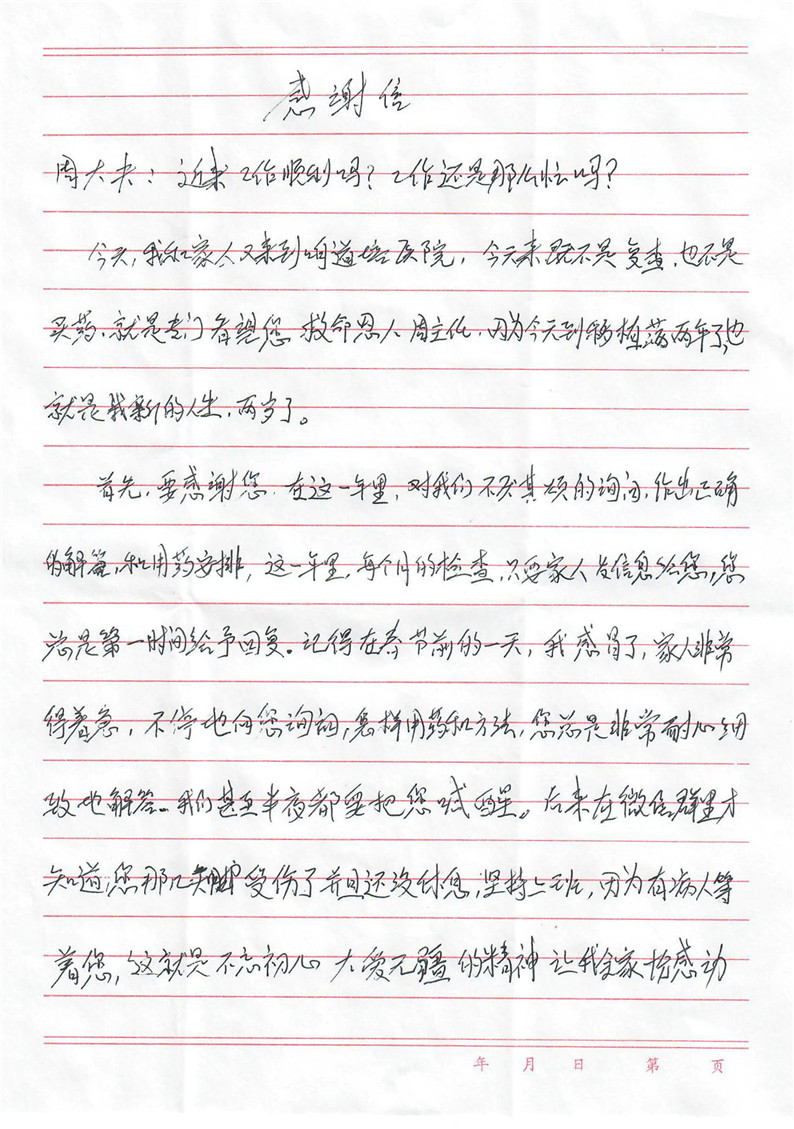 感谢信
周大夫：近来工作顺利吗？工作还是那么忙吗？
今天，我和家人又来到咱道培医院，今天来既不是复查，也不是
买药，就是专门看望您 救命恩人 周主任，因为今天到移植满两年了，也
就是我新的人生，两岁了。
首先，要感谢您，在这一年里，对我们不厌其烦的询问，作出正确
的解答，和用药安排，这一年里，每个月的检查，只要家人发信息给您，您
总是第一时间给予回复。记得在春节前的一天，我感冒了，家人非常
得着急，不停地向您询问，怎样用药和方法，您总是非常耐心细
致地解答。我们甚至半夜都要把您喊醒。后来在微信群里才
知道，您那几天脚受伤了并且还没休息，坚持上班，因为有病人等
着您，这就是不忘初心 大爱无疆的精神 让我全家感动
年 月 日 第 页